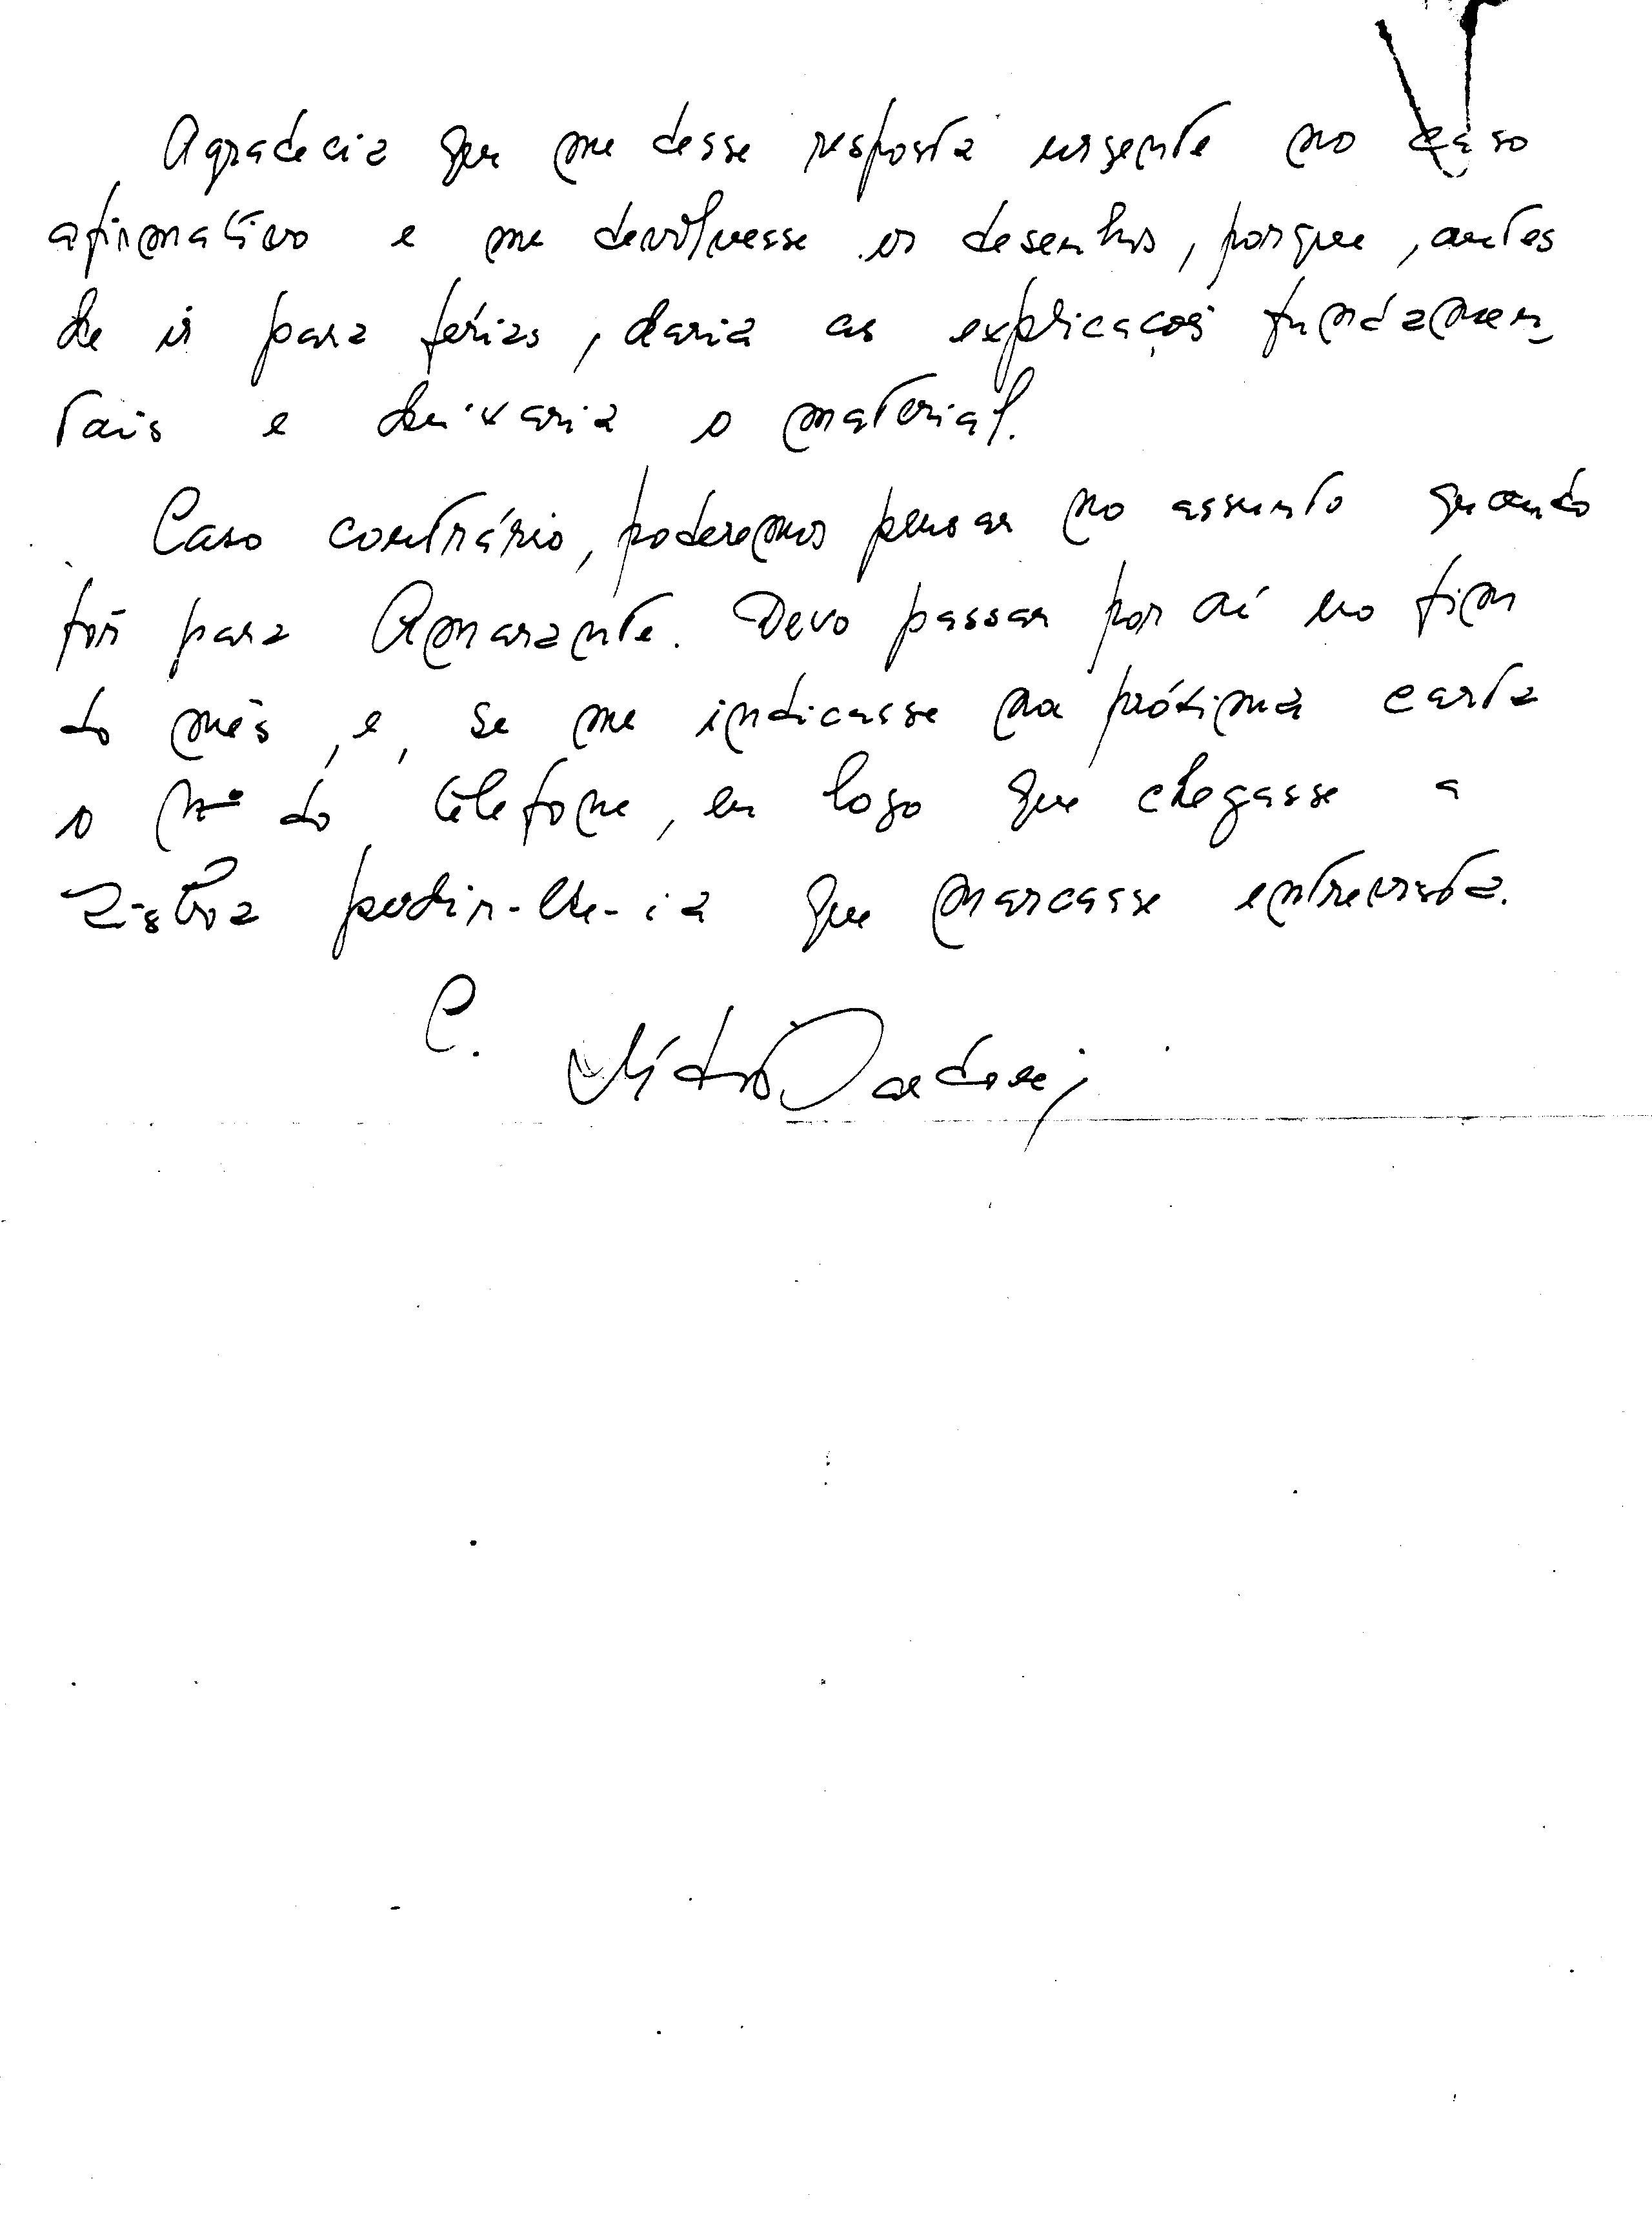 Agradecia que me desse resposta urgente no caso
afirmativo e me devolvesse os desenhos, porque, antes
de ir para férias, daria as explicações fundamen-
tais e deixaria o material.
Caso contrário, poderemos pensar no assunto quando
for para Amarante. Devo passar por aí no fim
do mês, e, se me indicasse na próxima carta
o nº do telefone, eu logo que chegasse a
Lisboa pedir-lhe-ia que marcasse entrevista.
C.